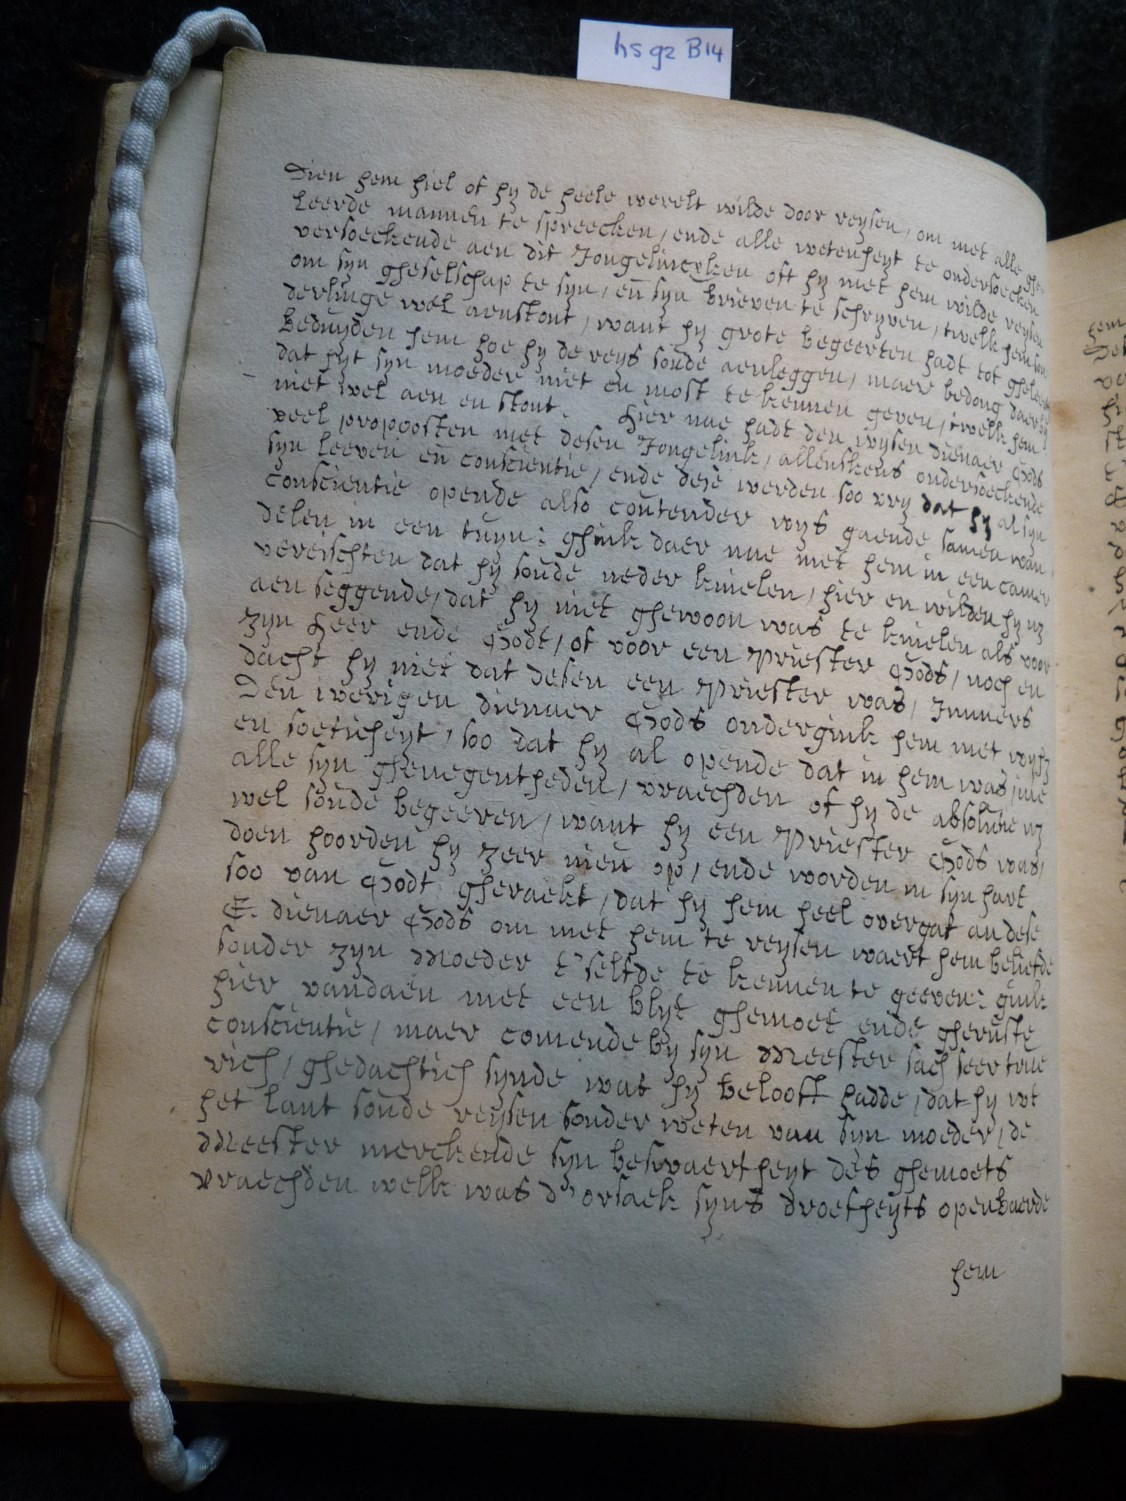 hs 92 B14
Dien hem hiel of hy de heele werelt wilde door reysen, om met alle ghe-
leerde mannen te spreecken, ende alle wetenheyt te ondersoecken
versoeckende aen dit Jongelincxken oft hy met hem wilde reysen
om syn gheselschap te syn, en syn brieven te schryven, twelk hem son
derlinge wel aenstont, want hy grote begeerten hadt tot
beduyden hem hoe hy de reys soude aenleggen, maer bedong daer by
dat hyt syn moeder niet en most te kennen geven, twelk hem
niet wel aen en stont. Hier nae hadt den wysen dienaer Gods
veel propoosten met desen Jongelink, allenskens ondersoeckende
syn leeven en conscientie, ende dese werden soo vry dat hy al syn
conscientie opende also coutender wys gaende samen wan
delen in een tuyn: ghink daer nae met hem in een camer
vereischten dat hy soude neder knielen, hier en wilden hy nz
aen seggende, dat hy niet ghewoon was te knielen als voor
zyn Heer ende Godt, of voor een Priester Gods, noch en
dacht hy niet dat desen een Priester was, Immers
Den iverigen dienaer Gods ondergink hem met
en soeticheyt, soo dat hy al opende dat in hem was,
alle syn ghenegentheden, vraechden of hy de absolutie nz
wel soude begeeren, want hy een Priester Gods was,
doen hoorden hy zeer nieu op, ende worden in syn hart
soo van Godt gheraekt, dat hy hem heel overgaf an dese
E. dienaer Gods om met hem te reysen waert hem beliefde
sonder zyn Moeder t'selfde te kennen te geeven: gink
hier vandaen met een blyt ghemoet ende gheruste
conscientie, maer comende by syn Meester sach seer true
rich, ghedachtich synde wat hy belooft hadde, dat hy wt
het lant soude reysen sonder weten van syn moeder, de
Meester merckende syn beswaertheyt des ghemoets
vraechden welk was d'orsaek syns droefheyts openbaerde
hem